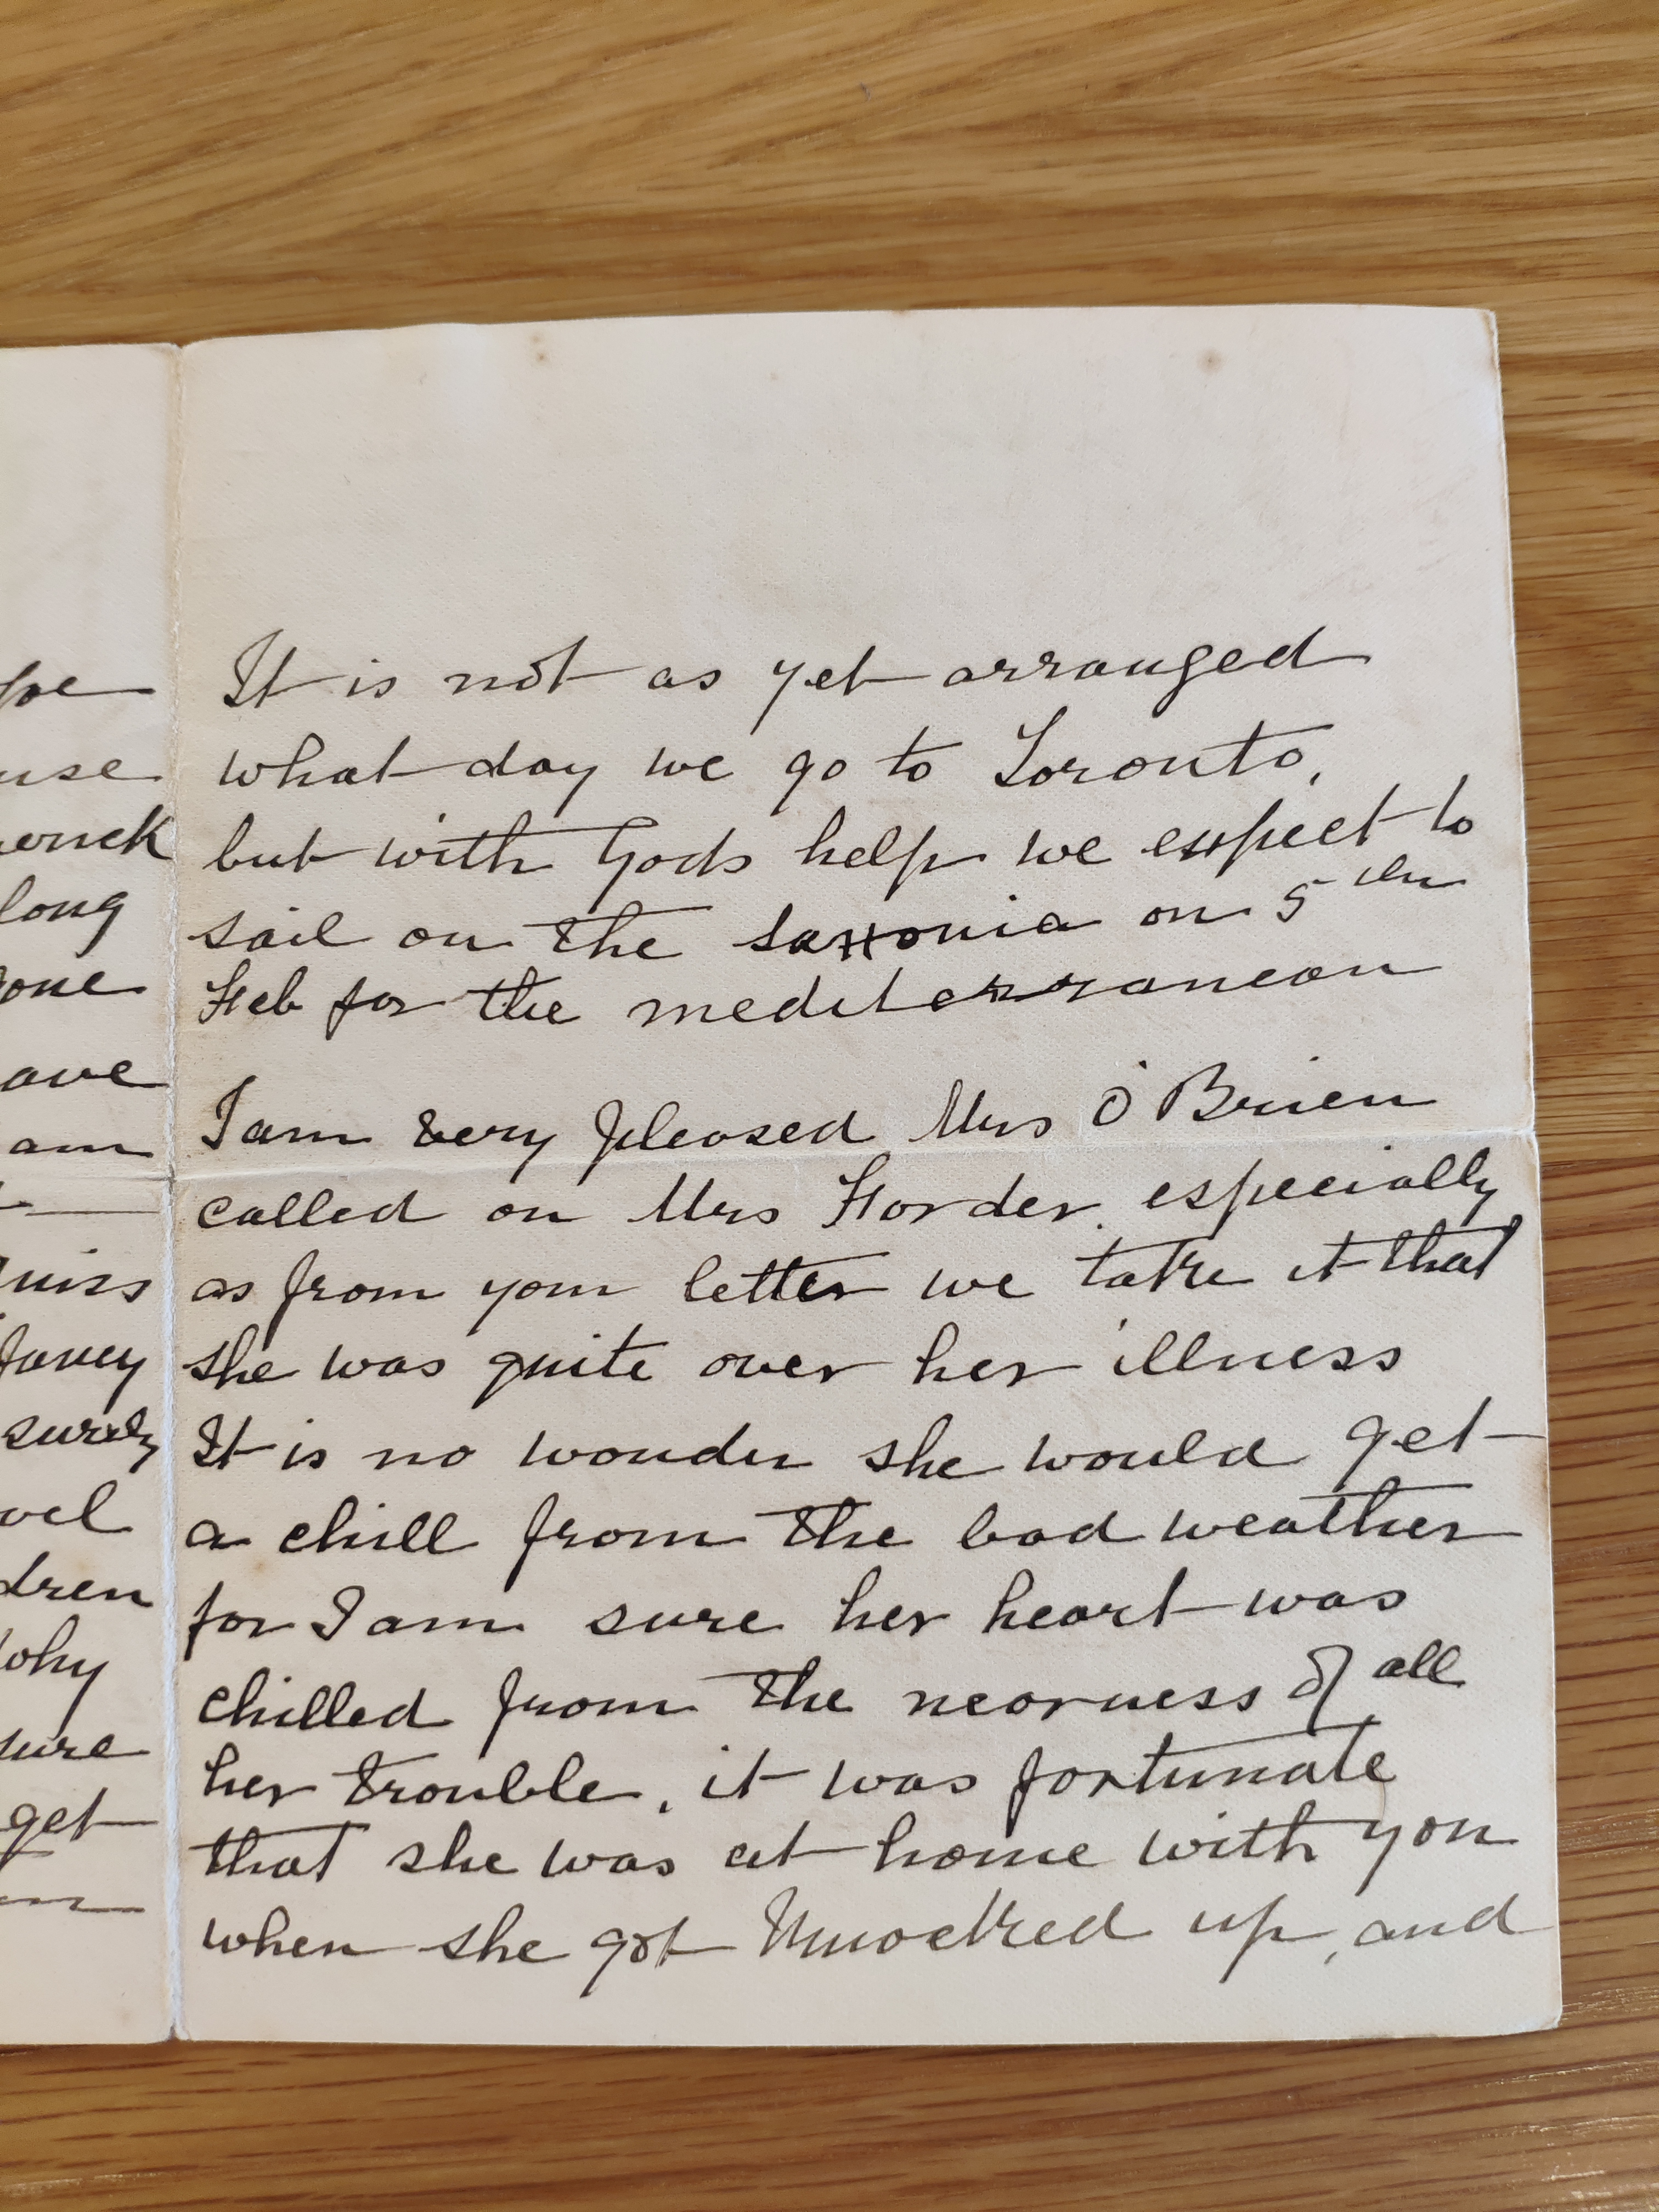 It is not as yet arranged
what day we go to Toronto,
but with Gods help we expect to
sail on the Saxonia on 5th
Feb for the mediterranean
I am very pleased Mrs O'Brien
called on Mrs Forder. especially
as from your letter we take it that
she was quite over her illness
It is no wonder she would get
a chill from the bad weather
for I am sure her heart was
chilled from the nearness of all
her trouble, it was fortunate
that she was at home with you
when she got Knocked up, and
use
long
one
ave
am
niss
fancy
surely
vel
dren
why
sure
get